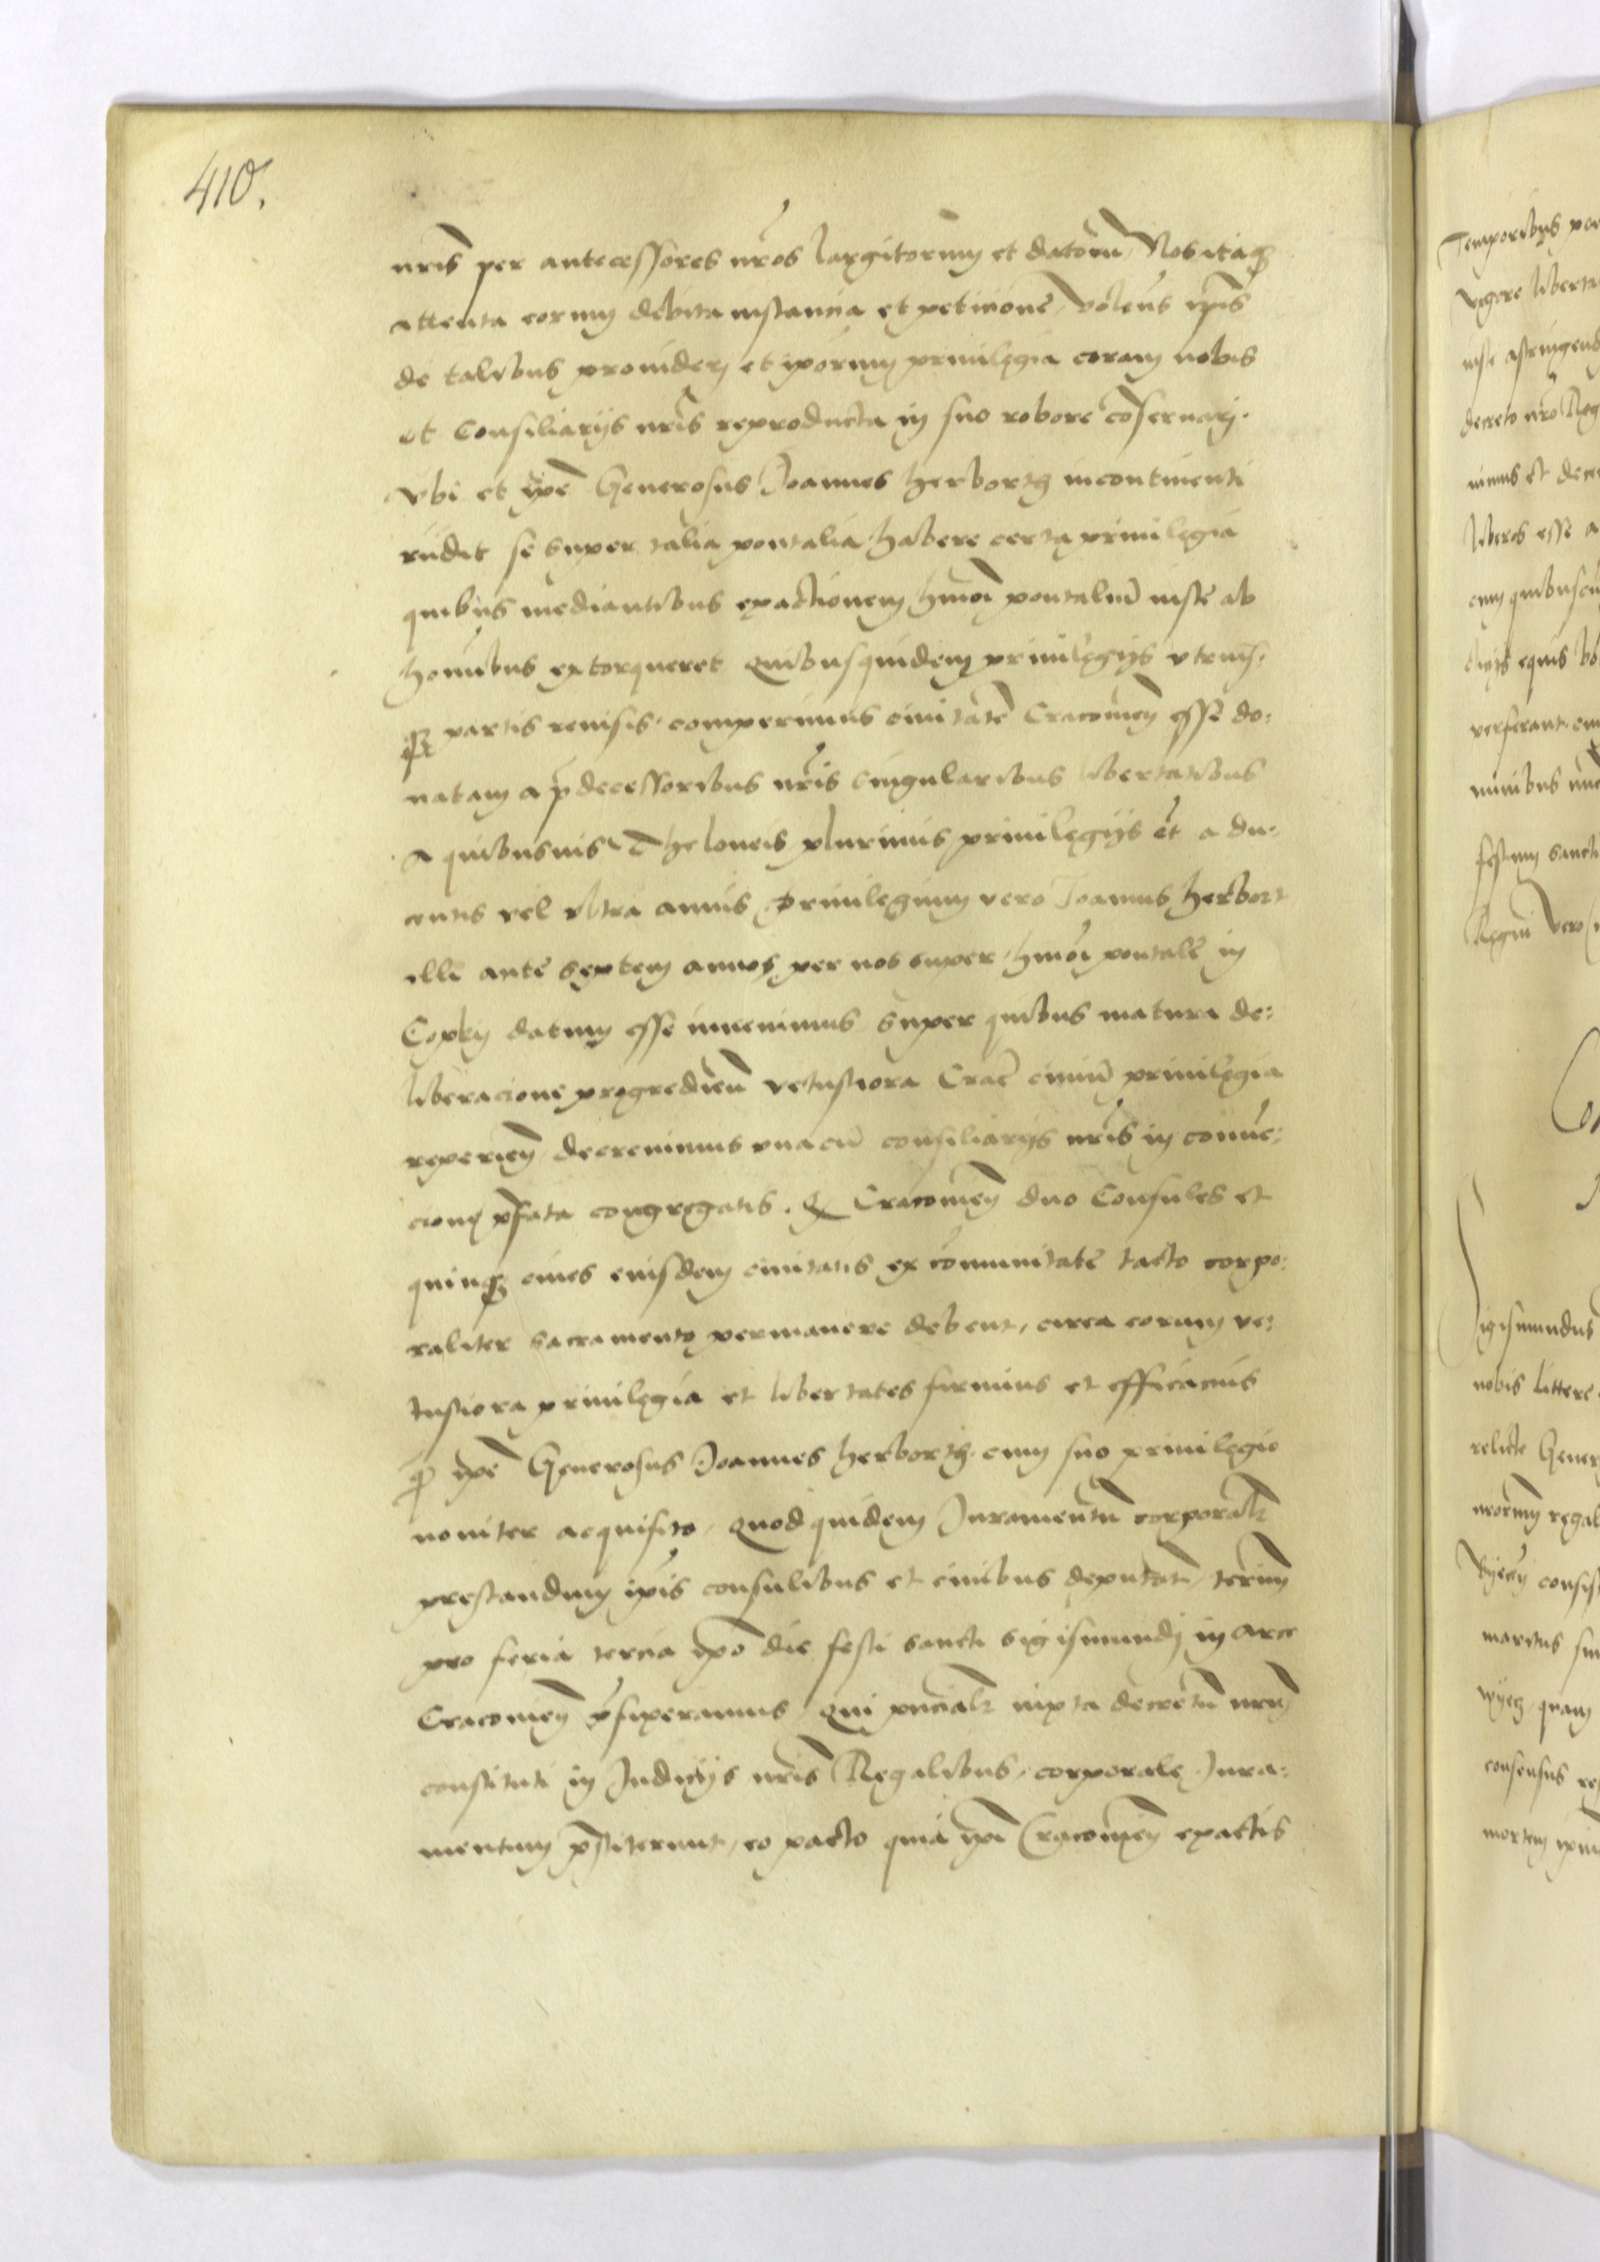 410.
nris per antecessores nros largitorum et datorum Nos itaq
attenta eorum debita instancia et peticione, volens ipis
de talibus providere et ipsorum privilegia coram nobis
et Consiliarijs nris reproducta in suo robore coservari.
Vbi et ipe Generosus Joannes herborth incontinenti
rndit se super talia pontalia habere certa privilegia
quibus mediantibus exactionem hmoi pontaliu iuste ab
hominibus extorqueret Quibusquidem privilegijs vtrius:
q partis revisis comperimus civitate Cracovien esse do:
natam a pdecessoribus nris singularibus libertatibus
a quibusvis Theloneis plurimis privilegijs et a du:
centis vel vltra annis, Privilegium vero Joannis herbort
illi ante septem annos per nos super hmoi pontale in
datum esse invenimus Super quibus matura de:
liberacione progredien vetustiora Crac civiu privilegia
reperien decrevimus vna cu consiliarijs nris in conve:
cione pfata congregatis. Q Cracovien duo Consules et
quinq cives eiusdem civitatis ex comunitate tacto corpo:
raliter sacramento permanere debent, circa eorum ve:
tustiora privilegia et libertates firmius et efficacius
q ipe Generosus Joannes herborth cum suo privilegio
noviter acquisito, Quodquidem Juramentu corporale
prestandum ipis consulibus et civibus deputat, termin
pro feria tercia ipo die festi sancti Sigismundi in arce
Cracovien Qui iuxta decretu nrum
constituti in Judicijs nris Regalibus, corporale Jura:
mentum pstiterunt, eo pacto quia ipi Cracovien exactis
Temporibus
libertat
decreto nro Reg
liberos esse a
equis
festum sancti
Regni vero
Sigismundus
nobis littere
relicte Gener
regal
consist
maritus
quam
consensus
mortem